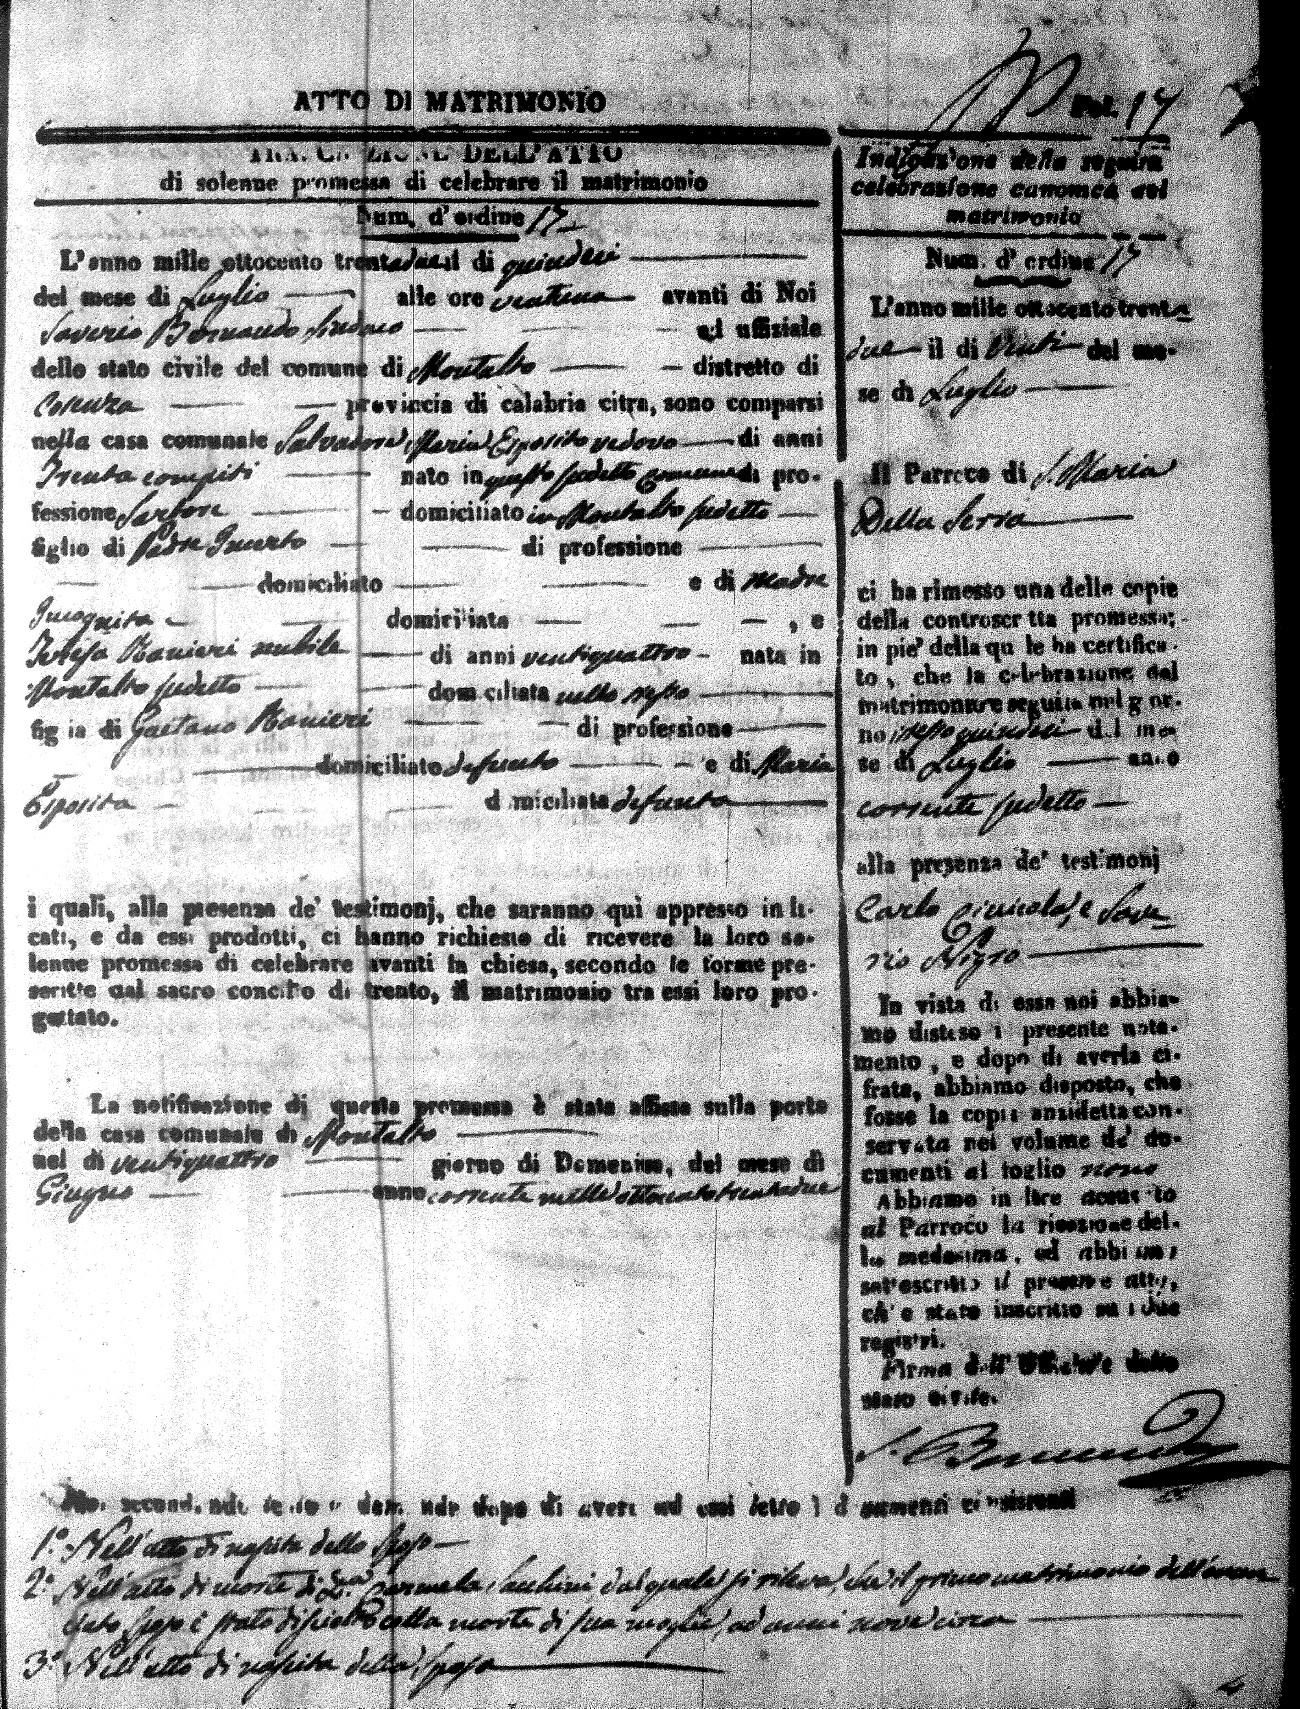 Fol. 17
ATTO DI MATRIMONIO
DELL'ATTO
di solenne promessa di celebrare il matrimonio
Num. d'ordine 17
L'anno mille ottocento trentadue il di quindeci
del mese di Luglio alle ore ventuna avanti di Noi
Saverio Sindaco ed uffiziale
dello stato civile del comune di Montalto distretto di
Cosenza provincia di calabria citra, sono comparsi
nella casa comunale Salvadore Maria Esposito vedovo di anni
Trenta compiti nato in questo sudetto comune di pro-
fessione Sartore domiciliato in Montalto sudetto
figlio di Padre Incerto di professione
domiciliato e di Madre
Incognita domiciliata , e
Teresa Ranieri nubile di anni ventiquattro nata in
Montalto sudetto domiciliata nello stesso
figlia di Gaetano Ranieri di professione
domiciliato defunto e di Maria
Esposita domiciliata defunta
i quali, alla presenza de' testimonj, che saranno quì appresso indi-
cati, e da essi prodotti, ci hanno richiesto di ricevere la loro so-
lenne promessa di celebrare avanti la chiesa, secondo le forme pre-
scritte dal sacro concilio di trento, il matrimonio tra essi loro pro-
gettato.
La notificazione di questa promessa è stata affissa sulla porta
della casa comunale di Montalto
nel di ventiquattro giorno di Domenica, del mese di
Giugno anno corrente mille ottocento trentadue
Indicazione della seguita
celebrazione canonica del
matrimonio
Num. d'ordine 17
L'anno mille ottocento trenta
due il di Venti del me-
se di Luglio
Il Parroco di S. Maria
Della Serra
ci ha rimesso una delle copie
della controscritta promessa;
in piè della quale ha certifica-
to, che la celebrazione del
matrimonio è seguita nel gior-
no stesso quindeci del me-
se di Luglio anno
corrente sudetto
alla presenza de' testimonj
Carlo e Save
rio Nigro
In vista di essa noi abbia-
mo disteso il presente nota-
mento, e dopo di averla ci-
frata, abbiamo disposto, che
fosse la copia anzidetta con-
servata nel volume de' do-
cumenti al foglio nono
Abbiamo in oltre accusato
al Parroco la ricezione del-
la medesima, ed abbiamo
sottoscritto il presente atto,
ch'è stato inscritto su i due
registri.
Firma dell'Uffiziale dello
stato civile.
Noi secondando la loro domanda dopo di avere ad essi letto i documenti consistenti
1.° Nell'atto di nascita dello Sposo
2.° Nell'atto di morte di Carmela dal quale si rileva, che il primo matrimonio dell'enun
ciato Sposo è stato disciolto colla morte di sua moglie, ad anni nove circa
3.° Nell'atto di nascita della Sposa